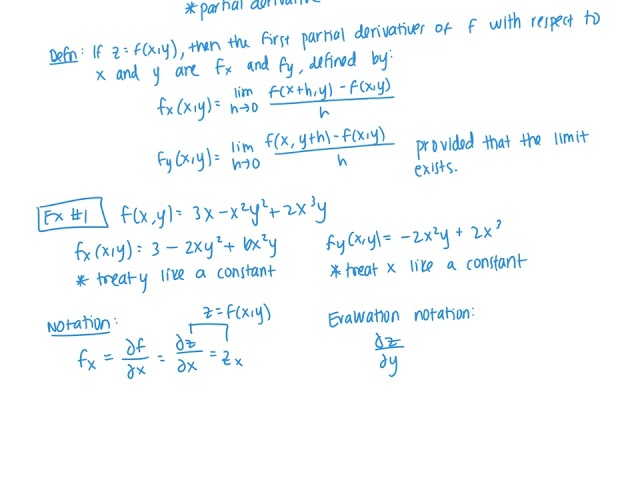 *partial derivative
Defn: If z = f(x,y), then the first partial derivatives of f with respect to
x and y are fx and fy, defined by:
fx(x,y) = lim h→0 f(x+h,y) - f(x,y) / h
fy(x,y) = lim h→0 f(x, y+h) - f(x,y) / h provided that the limit
exists.
Ex #1 f(x,y) = 3x - x²y² + 2x³y
fx(x,y) = 3 - 2xy² + 6x²y fy(x,y) = -2x²y + 2x³
* treat y like a constant * treat x like a constant
Notation: z = f(x,y) Evaluation notation:
fx = ∂f/∂x = ∂z/∂x = zx ∂z/∂y